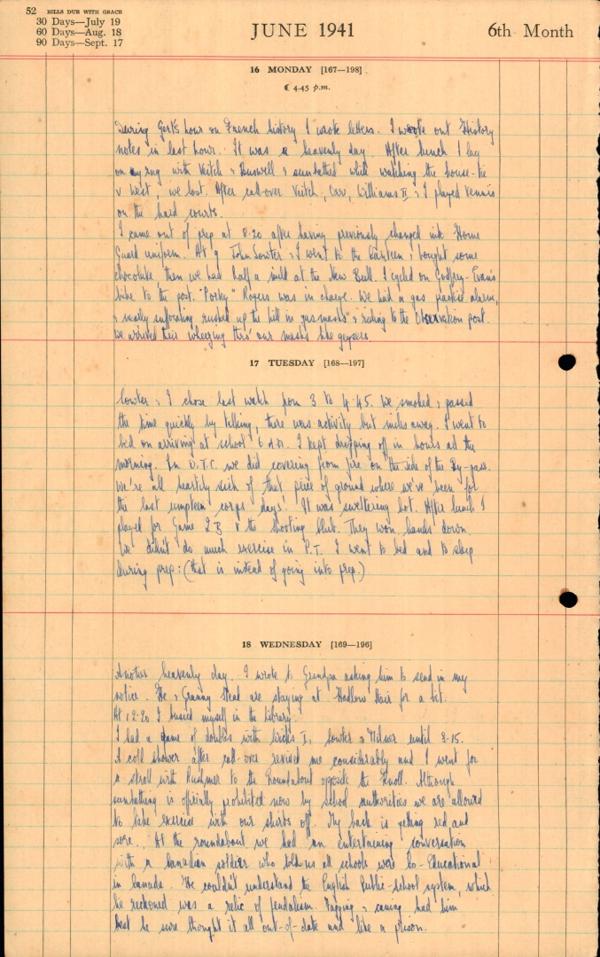 52 BILLS DUE WITH GRACE
30 Days—July 19
60 Days—Aug. 18
90 Days—Sept. 17
JUNE 1941
6th Month
16 MONDAY [167—198]
☾ 4.45 p.m.
During Gert's hour on French history I wrote letters. I wrote out History
notes in last hour. It was a heavenly day. After lunch I lay
on my rug with Veitch & Buswell & sunbathed while watching the house-tie
v West, we lost. After call-over Veitch, Carr, Williams II & I played tennis
on the hard courts.
I came out of prep at 8.20 after having previously changed into Home
Guard uniform. At 9 John Lowter & I went to the Canteen & bought some
chocolate then we had half a mild at the New Bull. I cycled on Godfrey-Evans
bike to the post. "Porky" Rogers was in charge. We had a gas practice alarm,
& really suffocating rushed up the hill in gas masks & riding to the Observation post.
We arrived there wheezing thro' our masks like geysers
17 TUESDAY [168—197]
Lowter & I chose last watch from 3 to 4.45. We smoked & passed
the time quickly by talking, there was activity but miles away. I went to
bed on arriving at school I kept dropping off in hours all the
morning. In O.T.C. we did covering from fire on the side of the By-pass.
We're all heartily sick of that piece of ground where we've been for
the last umpteen 'corps days'! It was sweltering hot. After lunch I
played for Game 2B v the shooting They won hands down.
We didn't do much exercise in P.T. I went to bed and to sleep
during prep: (that is instead of going into prep.)
18 WEDNESDAY [169—196]
Another heavenly day. I wrote to Grandpa asking him to send in my
notice. He & Granny Stead are staying at Hadlow Stair for a bit.
At 12.20 I busied myself in the library.
I had a game of doubles with I, Lowter & Milner until 3.15.
A cold shower after call-over revived me considerably and I went for
a stroll with Rushmer to the Roundabout opposite the Knoll. Although
sunbathing is officially prohibited now by school authorities we are allowed
to take exercise with our shirts off. My back is getting red and
sore. At the roundabout we had an entertaining conversation
with a Canadian soldier who told us all schools were Co-Educational
in Canada. He couldn't understand the English Public-school system, which
he reckoned was a relic of feudalism. Fagging & caning had him
beat he sure thought it all out-of-date and like a prison.